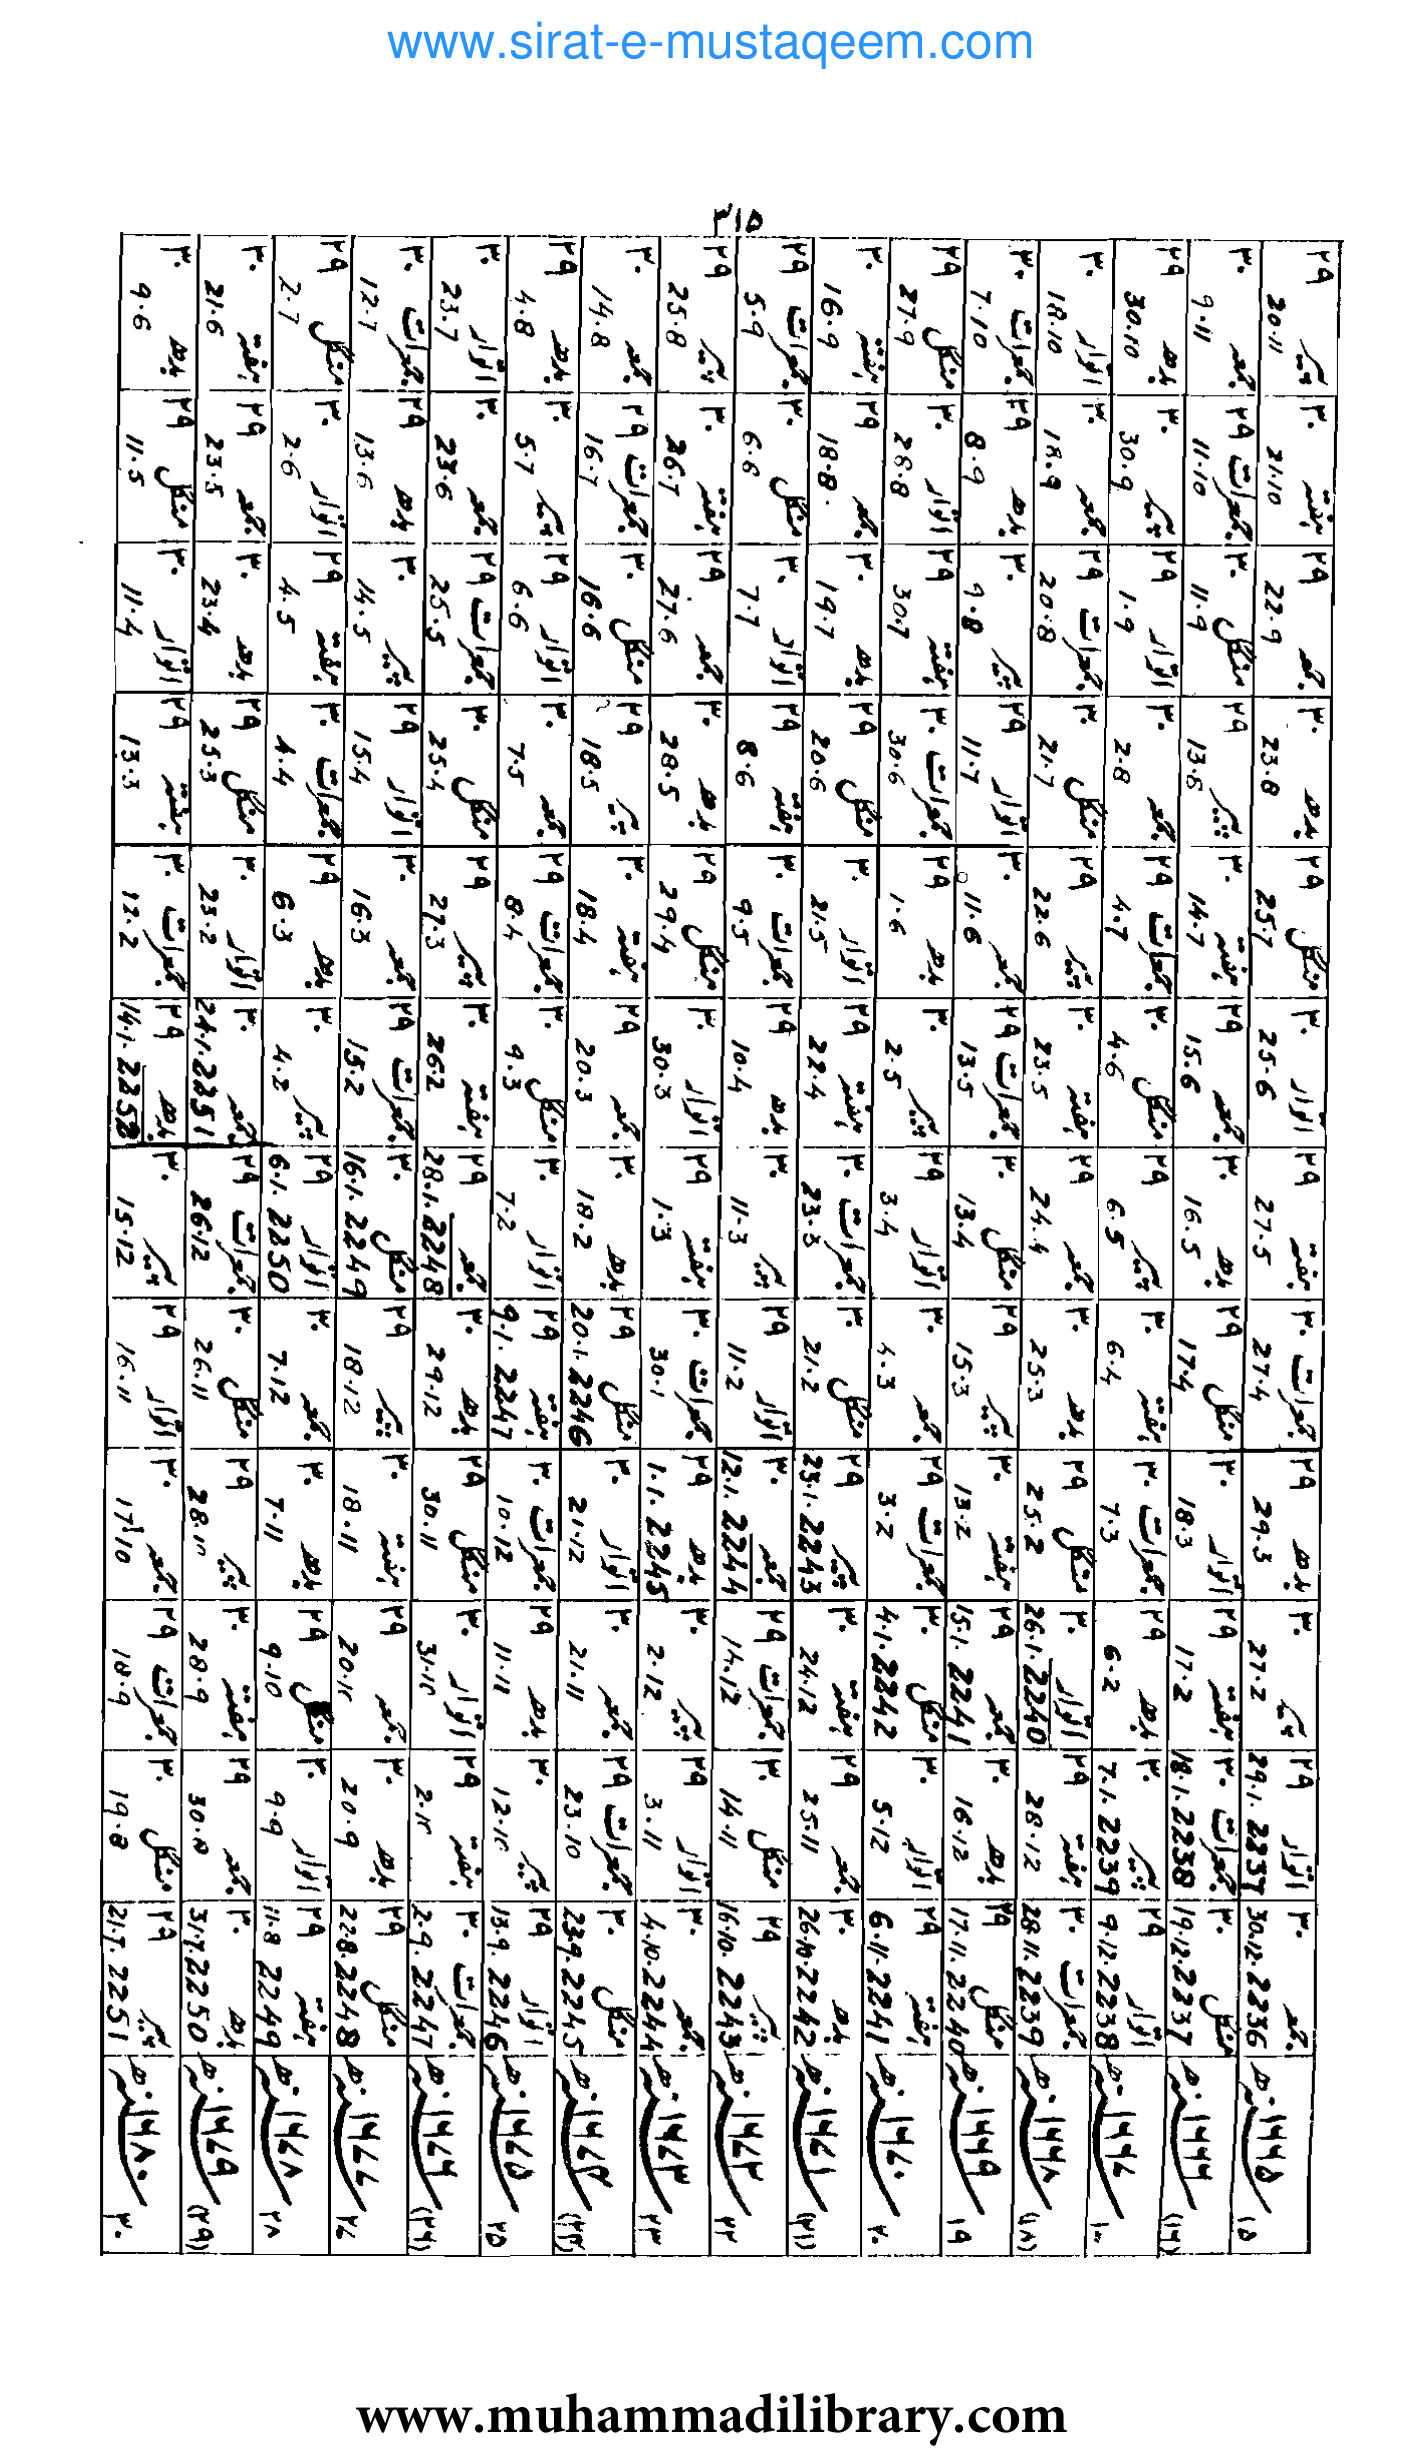 www.sirat-e-mustaqeem.com
۳۱۵
۱۵ ۱۶۶۵ھ جمعہ ۳۰ 30.12.2236 اتوار ۲۹ 29.1.2237 پیر ۳۰ 27.2 بدھ ۲۹ 29.3 جمعرات ۳۰ 27.4 ہفتہ ۲۹ 27.5 اتوار ۳۰ 25.6 منگل ۲۹ 25.7 بدھ ۳۰ 23.8 جمعہ ۲۹ 22.9 ہفتہ ۳۰ 21.10 پیر ۲۹ 20.11
(۱۶) ۱۶۶۶ھ منگل ۳۰ 19.12.2237 جمعرات ۳۰ 18.1.2238 ہفتہ ۲۹ 17.2 اتوار ۳۰ 18.3 منگل ۲۹ 17.4 بدھ ۳۰ 16.5 جمعہ ۲۹ 15.6 ہفتہ ۳۰ 14.7 پیر ۲۹ 13.8 منگل ۳۰ 11.9 جمعرات ۲۹ 11.10 جمعہ ۳۰ 9.11
۱۶۶۷ھ اتوار ۲۹ 9.12.2238 پیر ۳۰ 7.1.2239 بدھ ۲۹ 6.2 جمعرات ۳۰ 7.3 ہفتہ ۳۰ 6.4 پیر ۲۹ 6.5 منگل ۳۰ 4.6 جمعرات ۲۹ 4.7 جمعہ ۳۰ 2.8 اتوار ۲۹ 1.9 پیر ۳۰ 30.9 بدھ ۲۹ 30.10
(۱۸) ۱۶۶۸ھ جمعرات ۳۰ 28.11.2239 ہفتہ ۲۹ 28.12 اتوار ۳۰ 26.1.2240 منگل ۲۹ 25.2 بدھ ۳۰ 25.3 جمعہ ۲۹ 24.4 ہفتہ ۳۰ 23.5 پیر ۲۹ 22.6 منگل ۳۰ 21.7 جمعرات ۲۹ 20.8 جمعہ ۳۰ 18.9 اتوار ۳۰ 18.10
۱۹ ۱۶۶۹ھ منگل ۲۹ 17.11.2240 بدھ ۳۰ 16.12 جمعہ ۲۹ 15.1.2241 ہفتہ ۳۰ 13.2 پیر ۲۹ 15.3 منگل ۳۰ 13.4 جمعرات ۲۹ 13.5 جمعہ ۳۰ 11.6 اتوار ۲۹ 11.7 پیر ۳۰ 9.8 بدھ ۲۹ 8.9 جمعرات ۳۰ 7.10
۲۰ ۱۶۷۰ھ ہفتہ ۲۹ 6.11.2241 اتوار ۳۰ 5.12 منگل ۳۰ 4.1.2242 جمعرات ۲۹ 3.2 جمعہ ۳۰ 4.3 اتوار ۲۹ 3.4 پیر ۳۰ 2.5 بدھ ۲۹ 1.6 جمعرات ۳۰ 30.6 ہفتہ ۲۹ 30.7 اتوار ۳۰ 28.8 منگل ۲۹ 27.9
(۲۱) ۱۶۷۱ھ بدھ ۳۰ 26.10.2242 جمعہ ۲۹ 25.11 ہفتہ ۳۰ 24.12 پیر ۲۹ 23.1.2243 منگل ۳۰ 21.2 جمعرات ۳۰ 23.3 ہفتہ ۲۹ 22.4 اتوار ۳۰ 21.5 منگل ۲۹ 20.6 بدھ ۳۰ 19.7 جمعہ ۲۹ 18.8 ہفتہ ۳۰ 16.9
۲۲ ۱۶۷۲ھ پیر ۲۹ 16.10.2243 منگل ۳۰ 14.11 جمعرات ۲۹ 14.12 جمعہ ۳۰ 12.1.2244 اتوار ۲۹ 11.2 پیر ۳۰ 11.3 بدھ ۲۹ 10.4 جمعرات ۳۰ 9.5 ہفتہ ۲۹ 8.6 اتوار ۳۰ 7.7 منگل ۳۰ 6.8 جمعرات ۲۹ 5.9
۲۳ ۱۶۷۳ھ جمعہ ۳۰ 4.10.2244 اتوار ۲۹ 3.11 پیر ۳۰ 2.12 بدھ ۲۹ 1.1.2245 جمعرات ۳۰ 30.1 ہفتہ ۲۹ 1.3 اتوار ۳۰ 30.3 منگل ۲۹ 29.4 بدھ ۳۰ 28.5 جمعہ ۲۹ 27.6 ہفتہ ۳۰ 26.7 پیر ۲۹ 25.8
(۲۴) ۱۶۷۴ھ منگل ۳۰ 23.9.2245 جمعرات ۲۹ 23.10 جمعہ ۳۰ 21.11 اتوار ۳۰ 21.12 منگل ۲۹ 20.1.2246 بدھ ۳۰ 18.2 جمعہ ۲۹ 20.3 ہفتہ ۳۰ 18.4 پیر ۲۹ 18.5 منگل ۳۰ 16.6 جمعرات ۲۹ 16.7 جمعہ ۳۰ 14.8
۲۵ ۱۶۷۵ھ اتوار ۲۹ 13.9.2246 پیر ۳۰ 12.10 بدھ ۲۹ 11.11 جمعرات ۳۰ 10.12 ہفتہ ۲۹ 9.1.2247 اتوار ۳۰ 7.2 منگل ۳۰ 9.3 جمعرات ۲۹ 8.4 جمعہ ۳۰ 7.5 اتوار ۲۹ 6.6 پیر ۳۰ 5.7 بدھ ۲۹ 4.8
(۲۶) ۱۶۷۶ھ جمعرات ۳۰ 2.9.2247 ہفتہ ۲۹ 2.10 اتوار ۳۰ 31.10 منگل ۲۹ 30.11 بدھ ۳۰ 29.12 جمعہ ۲۹ 28.1.2248 ہفتہ ۳۰ 26.2 پیر ۲۹ 27.3 منگل ۳۰ 25.4 جمعرات ۲۹ 25.5 جمعہ ۳۰ 23.6 اتوار ۳۰ 23.7
۲۷ ۱۶۷۷ھ منگل ۲۹ 22.8.2248 بدھ ۳۰ 20.9 جمعہ ۲۹ 20.10 ہفتہ ۳۰ 18.11 پیر ۲۹ 18.12 منگل ۳۰ 16.1.2249 جمعرات ۲۹ 15.2 جمعہ ۳۰ 16.3 اتوار ۲۹ 15.4 پیر ۳۰ 14.5 بدھ ۲۹ 13.6 جمعرات ۳۰ 12.7
۲۸ ۱۶۷۸ھ ہفتہ ۲۹ 11.8.2249 اتوار ۳۰ 9.9 منگل ۲۹ 9.10 بدھ ۳۰ 7.11 جمعہ ۳۰ 7.12 اتوار ۲۹ 6.1.2250 پیر ۳۰ 4.2 بدھ ۲۹ 6.3 جمعرات ۳۰ 4.4 ہفتہ ۲۹ 4.5 اتوار ۳۰ 2.6 منگل ۲۹ 2.7
(۲۹) ۱۶۷۹ھ بدھ ۳۰ 31.7.2250 جمعہ ۲۹ 30.8 ہفتہ ۳۰ 28.9 پیر ۲۹ 28.10 منگل ۳۰ 26.11 جمعرات ۲۹ 26.12 جمعہ ۳۰ 24.1.2251 اتوار ۳۰ 23.2 منگل ۲۹ 25.3 بدھ ۳۰ 23.4 جمعہ ۲۹ 23.5 ہفتہ ۳۰ 21.6
۳۰ ۱۶۸۰ھ پیر ۲۹ 21.7.2251 منگل ۳۰ 19.8 جمعرات ۲۹ 18.9 جمعہ ۳۰ 17.10 اتوار ۲۹ 16.11 پیر ۳۰ 15.12 بدھ ۲۹ 14.1.2252 جمعرات ۳۰ 12.2 ہفتہ ۲۹ 13.3 اتوار ۳۰ 11.4 منگل ۲۹ 11.5 بدھ ۳۰ 9.6
www.muhammadilibrary.com